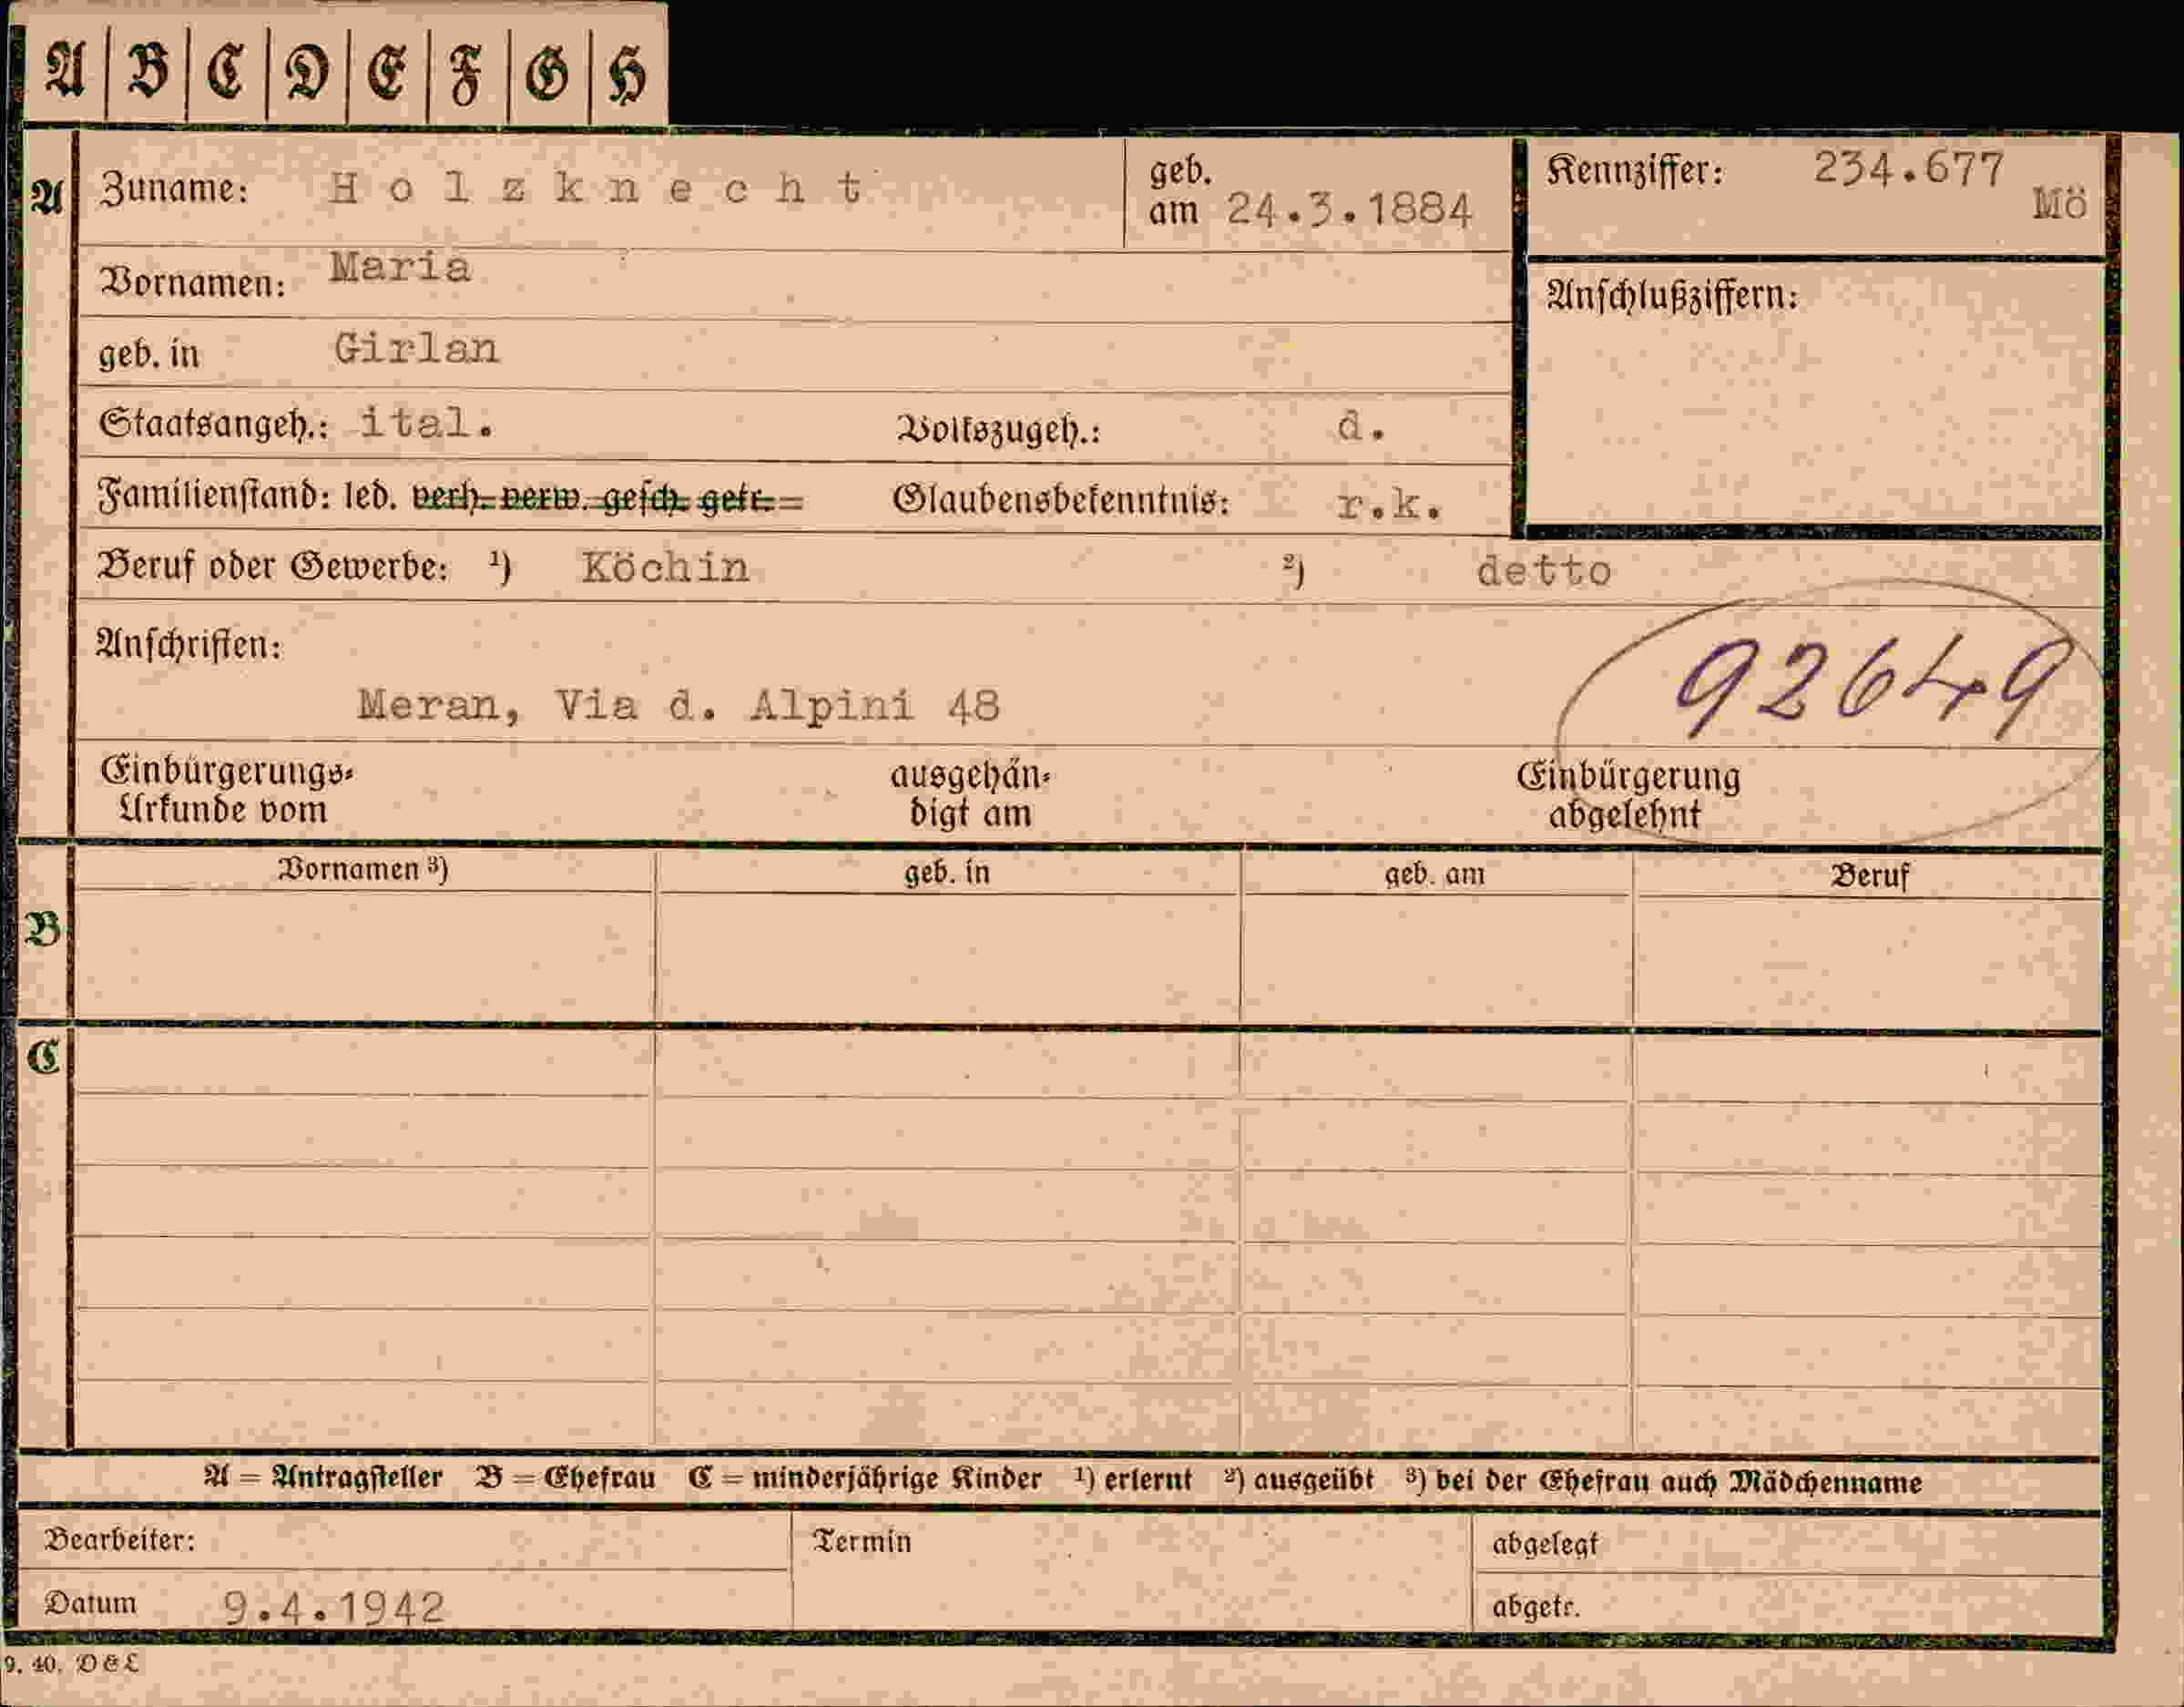 A | B | C | D | E | F | G | H
A Zuname: Holzknecht geb. am 24.3.1884 Kennziffer: 234.677 Mö
Vornamen: Maria
Anschlußziffern:
geb. in Girlan
Staatsangeh.: ital. Volkszugeh.: d.
Familienstand: led. verh. verw. gesch. getr. Glaubensbekenntnis: r.k.
Beruf oder Gewerbe: ¹) Köchin ²) detto
Anschriften:
92649
Meran, Via d. Alpini 48
Einbürgerungs- ausgehän- Einbürgerung
Urkunde vom digt am abgelehnt
Vornamen ³) geb. in geb. am Beruf
B
C
A = Antragsteller B = Ehefrau C = minderjährige Kinder ¹) erlernt ²) ausgeübt ³) bei der Ehefrau auch Mädchenname
Bearbeiter: Termin abgelegt
Datum 9.4.1942 abgetr.
9. 40. D & L